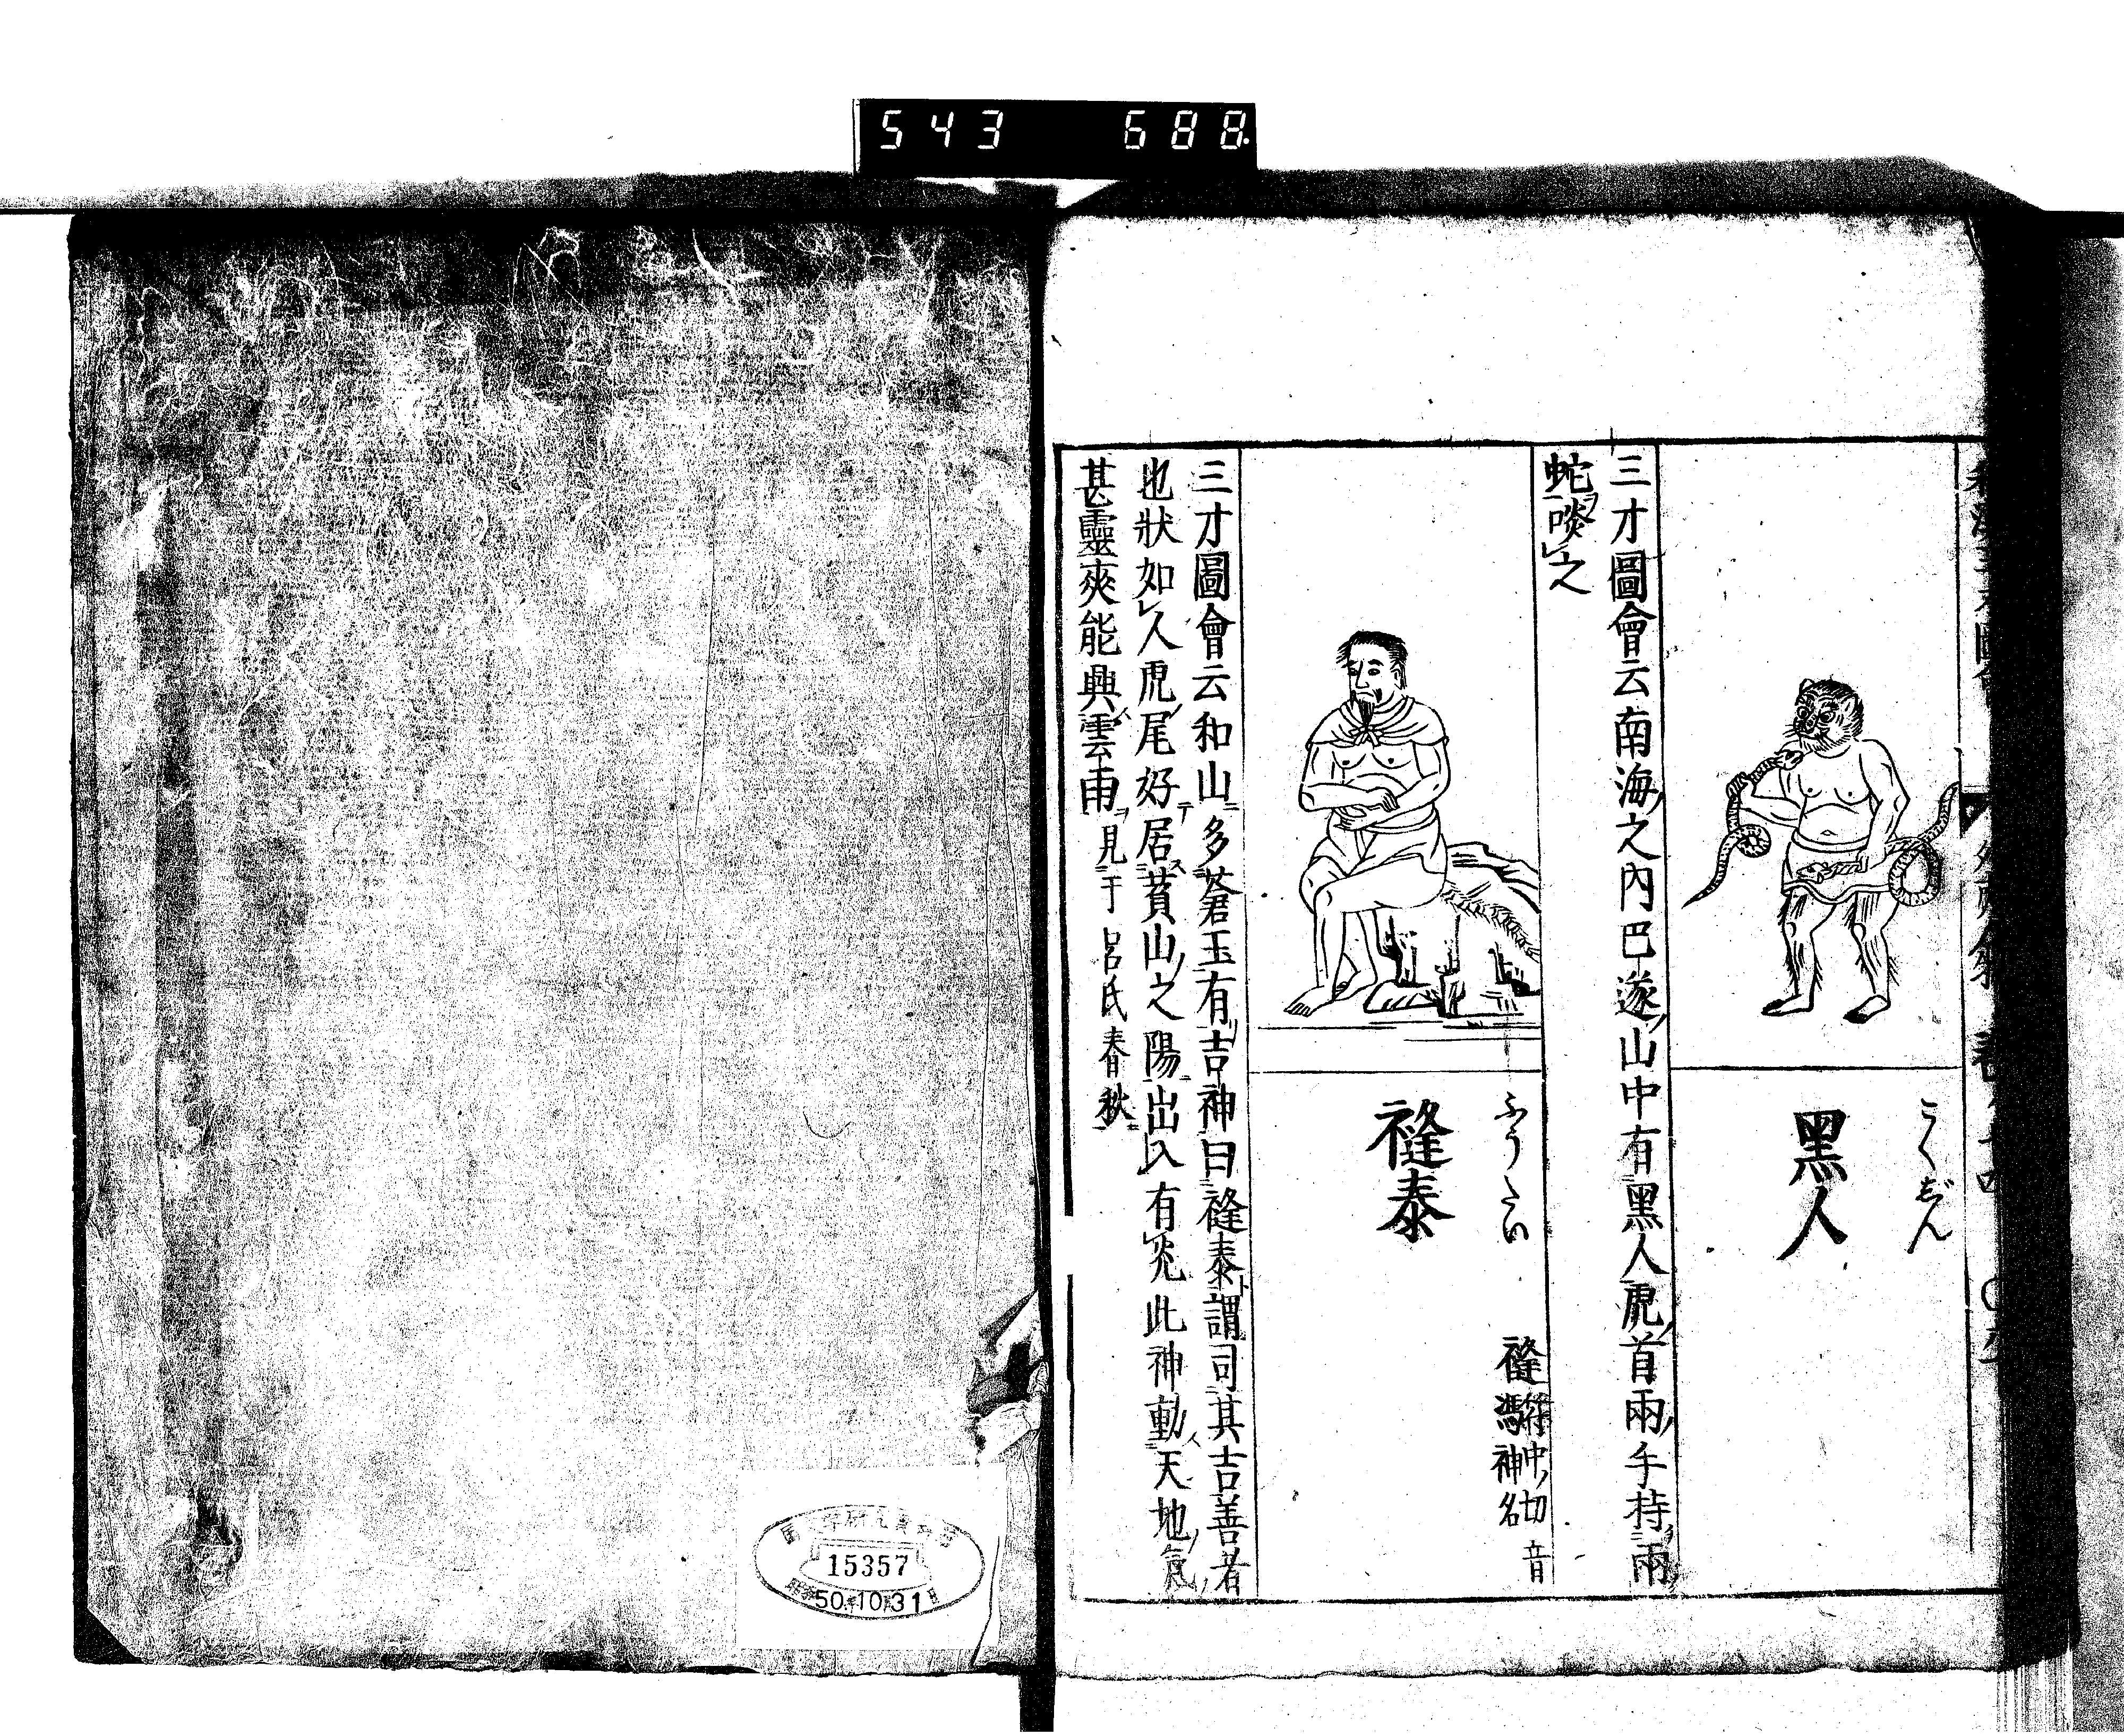 543 688
こくじん
黑人
三才圖會云南海之內巴遂山中有黑人虎首兩手持兩
蛇啖之
ふうたい
䙜泰
符中切 音
馮神名
三才圖會云和山多蒼玉有吉神曰泰謂司其吉善者
也狀如人虎尾好居萯山之陽出入有光此神動天地氣
甚靈爽能興雲雨見于呂氏春秋
15357
50.10.31